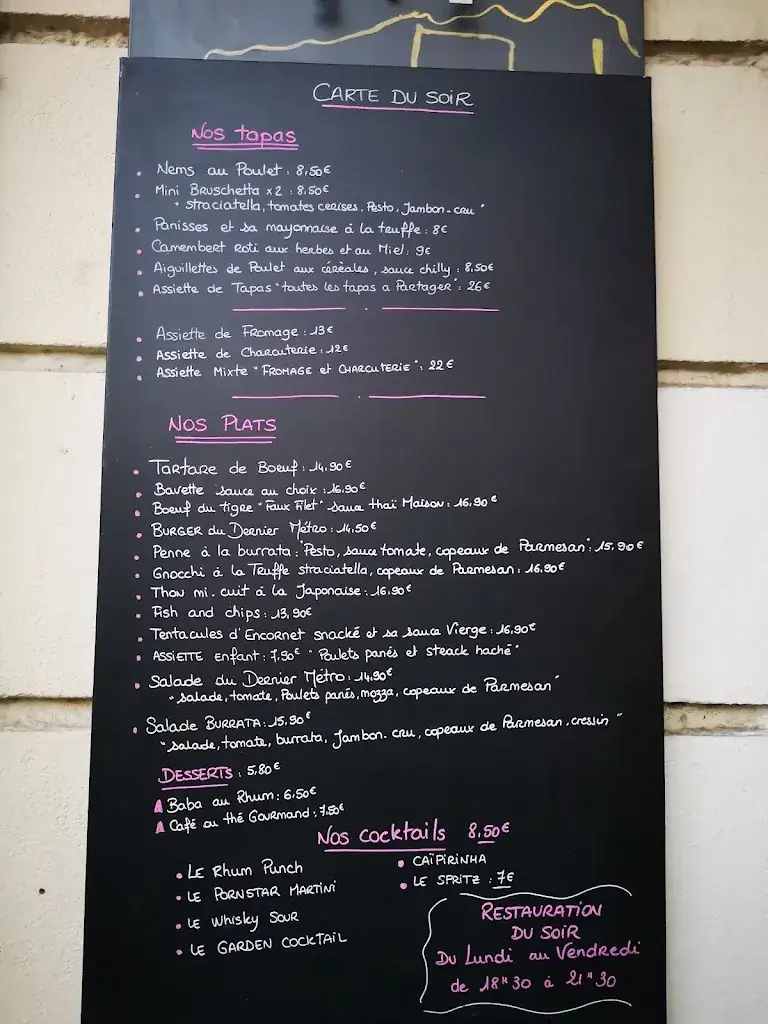 CARTE DU SOIR
Nos tapas
Nems au Poulet : 8,50€
Mini Bruschetta x2 : 8,50€
" straciatella, tomates cerises, Pesto, Jambon-cru "
Panisses et sa mayonnaise à la truffe : 8€
Camembert Roti aux herbes et au Miel : 9€
Aiguillettes de Poulet aux céréales, sauce chilly : 8,50€
Assiette de Tapas "toutes les tapas a Partager" : 26€
Assiette de Fromage : 13€
Assiette de Charcuterie : 12€
Assiette Mixte " FROMAGE et CHARCUTERIE " : 22€
NOS PLATS
Tartare de Boeuf : 14,90€
Bavette sauce au choix : 16,90€
Boeuf du tigre "Faux Filet" sauce thaï Maison : 16,90€
BURGER du Dernier Métro : 14,50€
Penne à la burrata : "Pesto, sauce tomate, copeaux de Parmesan" : 15,90€
Gnocchi à la Truffe straciatella, copeaux de Parmesan : 16,90€
Thon mi-cuit à la Japonaise : 16,90€
Fish and chips : 13,90€
Tentacules d'Encornet snacké et sa sauce Vierge : 16,90€
ASSIETTE enfant : 7,90€ " Poulets panés et steack haché "
Salade du Dernier Métro : 14,90€
" salade, tomate, Poulets panés, mozza, copeaux de Parmesan "
Salade BURRATA : 15,90€
" salade, tomate, burrata, Jambon-cru, copeaux de Parmesan, cressin "
DESSERTS : 5,80€
Baba au Rhum : 6,50€
Café ou thé Gourmand : 7,50€
Nos cocktails 8,50€
LE Rhum Punch
LE PORNSTAR MARTINI
LE Whisky SOUR
LE GARDEN COCKTAIL
CAÏPIRINHA
LE SPRITZ : 7€
RESTAURATION
DU SOIR
Du Lundi au Vendredi
de 18H30 à 21H30